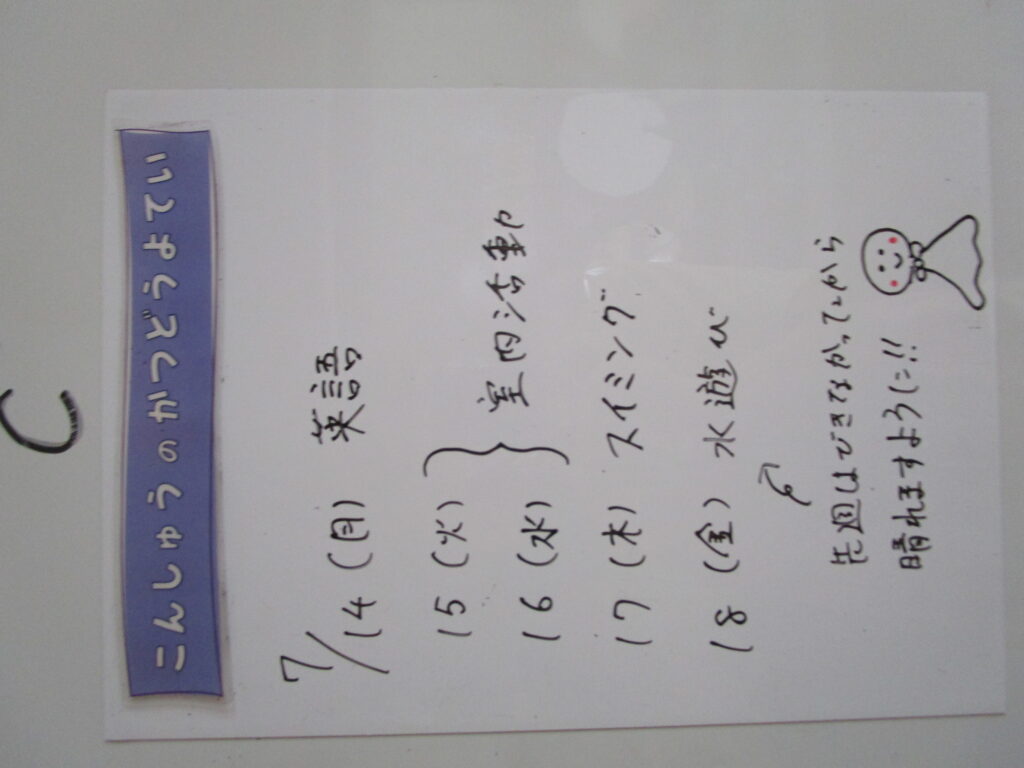 C
こんしゅうのかつどうよてい
7/14(月) 英語
15(火)
16(水) } 室内活動
17(木) スイミング
18(金) 水遊び
先週はできなかってこから
晴れますように!!